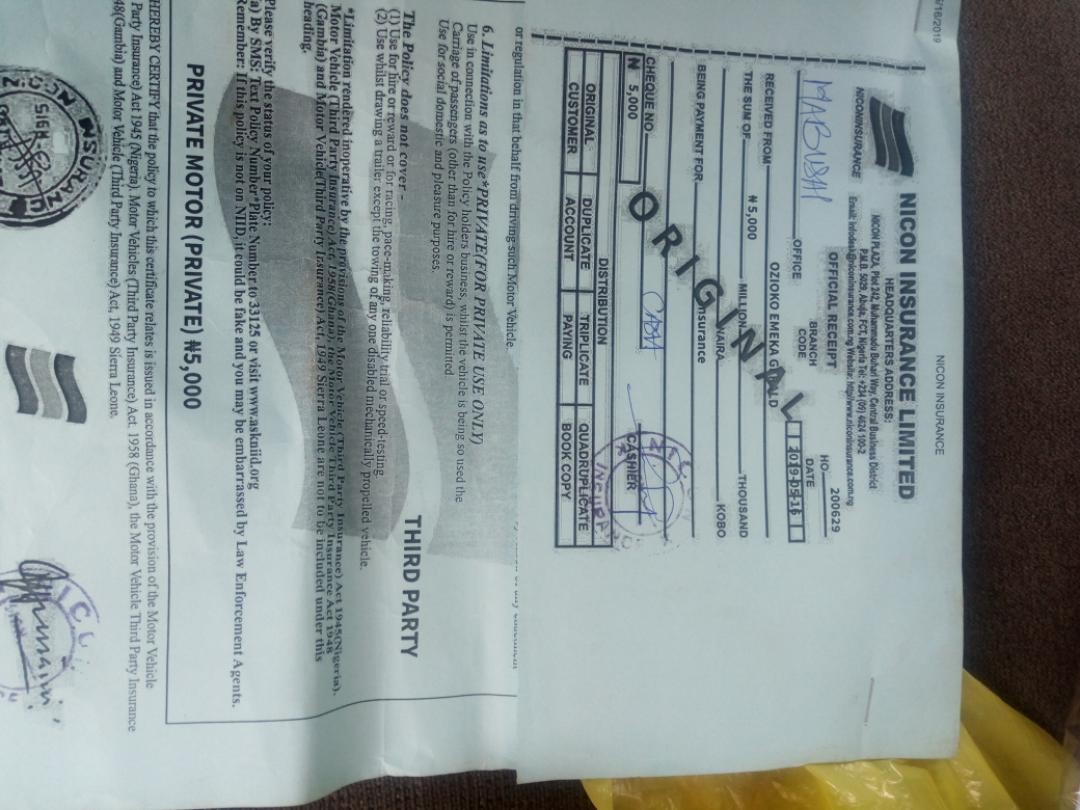 NICON INSURANCE
5/16/2019
NICON INSURANCE LIMITED
HEADQUARTERS ADDRESS:
NICON PLAZA, Plot 242, Muhammadu Buhari Way, Central Business District
P.M.B. 5029, Abuja, FCT, Nigeria Tel: +234 (09) 4624 100-2
Email: infodesk@niconinsurance.com.ng Website: http//www.niconinsurance.com.ng
NICONINSURANCE
OFFICIAL RECEIPT
HO 200629
MABUSHI
OFFICE
BRANCH CODE
DATE
2019-05-16
RECEIVED FROM OZIOKO EMEKA
THE SUM OF ₦ 5,000 MILLION THOUSAND
NAIRA KOBO
BEING PAYMENT FOR insurance
ORIGINAL
CHEQUE NO. CASH
₦ 5,000
CASHIER
DISTRIBUTION
ORIGINAL DUPLICATE TRIPLICATE QUADRUPLICATE
CUSTOMER ACCOUNT PAYING BOOK COPY
or regulation in that behalf from driving such Motor Vehicle.
6. Limitations as to use*PRIVATE(FOR PRIVATE USE ONLY)
Use in connection with the Policy holders business, whilst the vehicle is being so used the
Carriage of passengers (other than for hire or reward) is permitted
Use for social domestic and pleasure purposes.
THIRD PARTY
The Policy does not cover -
(1) Use for hire or reward or for racing, pace-making, reliability trial or speed-testing.
(2) Use whilst drawing a trailer except the towing of any one disabled mechanically propelled vehicle.
*Limitation rendered inoperative by the provisions of the Motor Vehicle (Third Party Insurance) Act 1945(Nigeria).
Motor Vehicle (Third Party Insurance) Act 1958(Ghana), the Motor Vehicle Third Party Insurance Act 1948
(Gambia) and Motor Vehicle(Third Party Insurance) Act, 1949 Sierra Leone are not to be included under this
heading.
Please verify the status of your policy:
a) By SMS: Text Policy Number*Plate Number to 33125 or visit www.askniid.org
Remember: If this policy is not on NIID, it could be fake and you may be embarrassed by Law Enforcement Agents.
PRIVATE MOTOR (PRIVATE) ₦5,000
HEREBY CERTIFY that the policy to which this certificate relates is issued in accordance with the provision of the Motor Vehicle
Party Insurance) Act 1945 (Nigera). Motor Vehicles (Third Party Insurance) Act. 1958 (Ghana), the Motor Vehicle Third Party Insurance
48(Gambia) and Motor Vehicle (Third Party Insurance) Act, 1949 Sierra Leone.